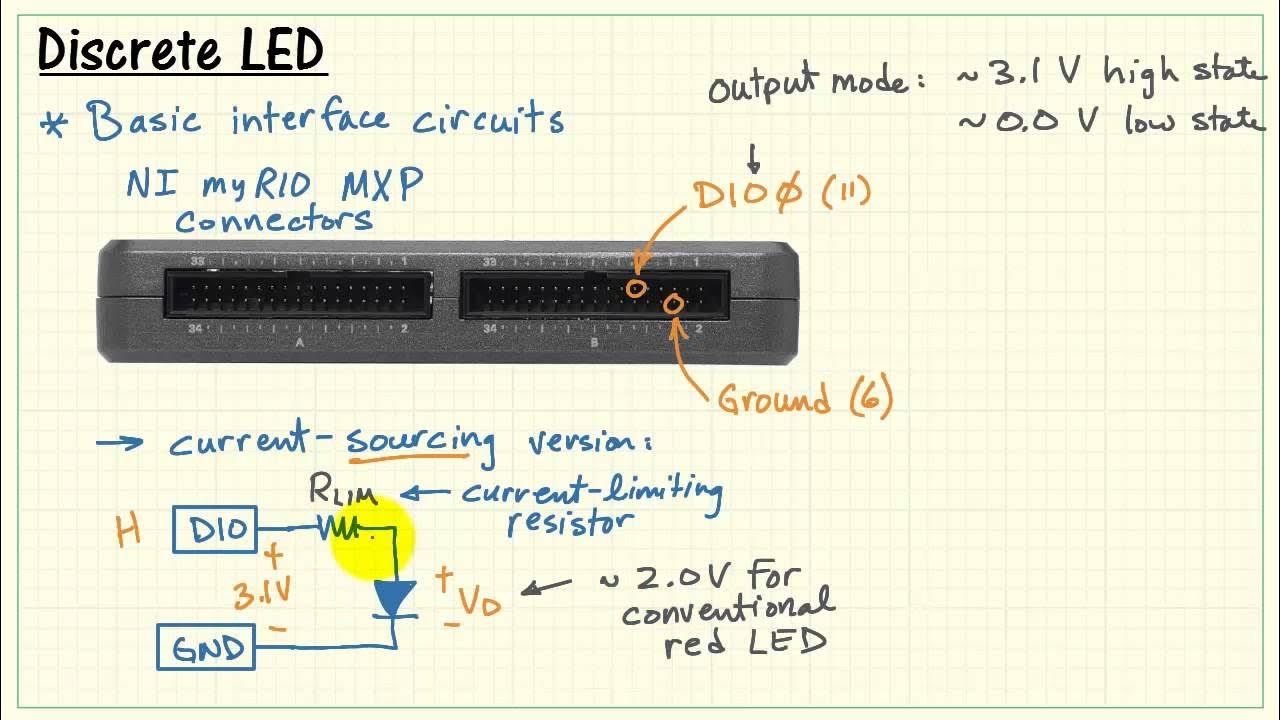 Discrete LED
* Basic interface circuits
output mode: ~3.1 V high state
~0.0 V low state
NI myRIO MXP
connectors
DIO0 (11)
33 1 33 1
34 2 34 2
A B
Ground (6)
→ current-sourcing version:
RLIM ← current-limiting
resistor
H DIO
+
3.1V
-
GND
+
VD
-
← ~2.0V for
conventional
red LED